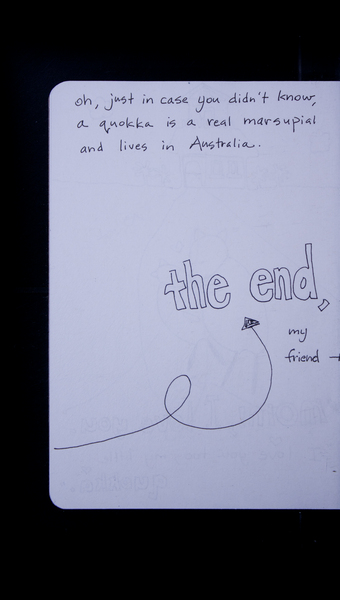 oh, just in case you didn't know,
a quokka is a real marsupial
and lives in Australia.
the end,
my
friend